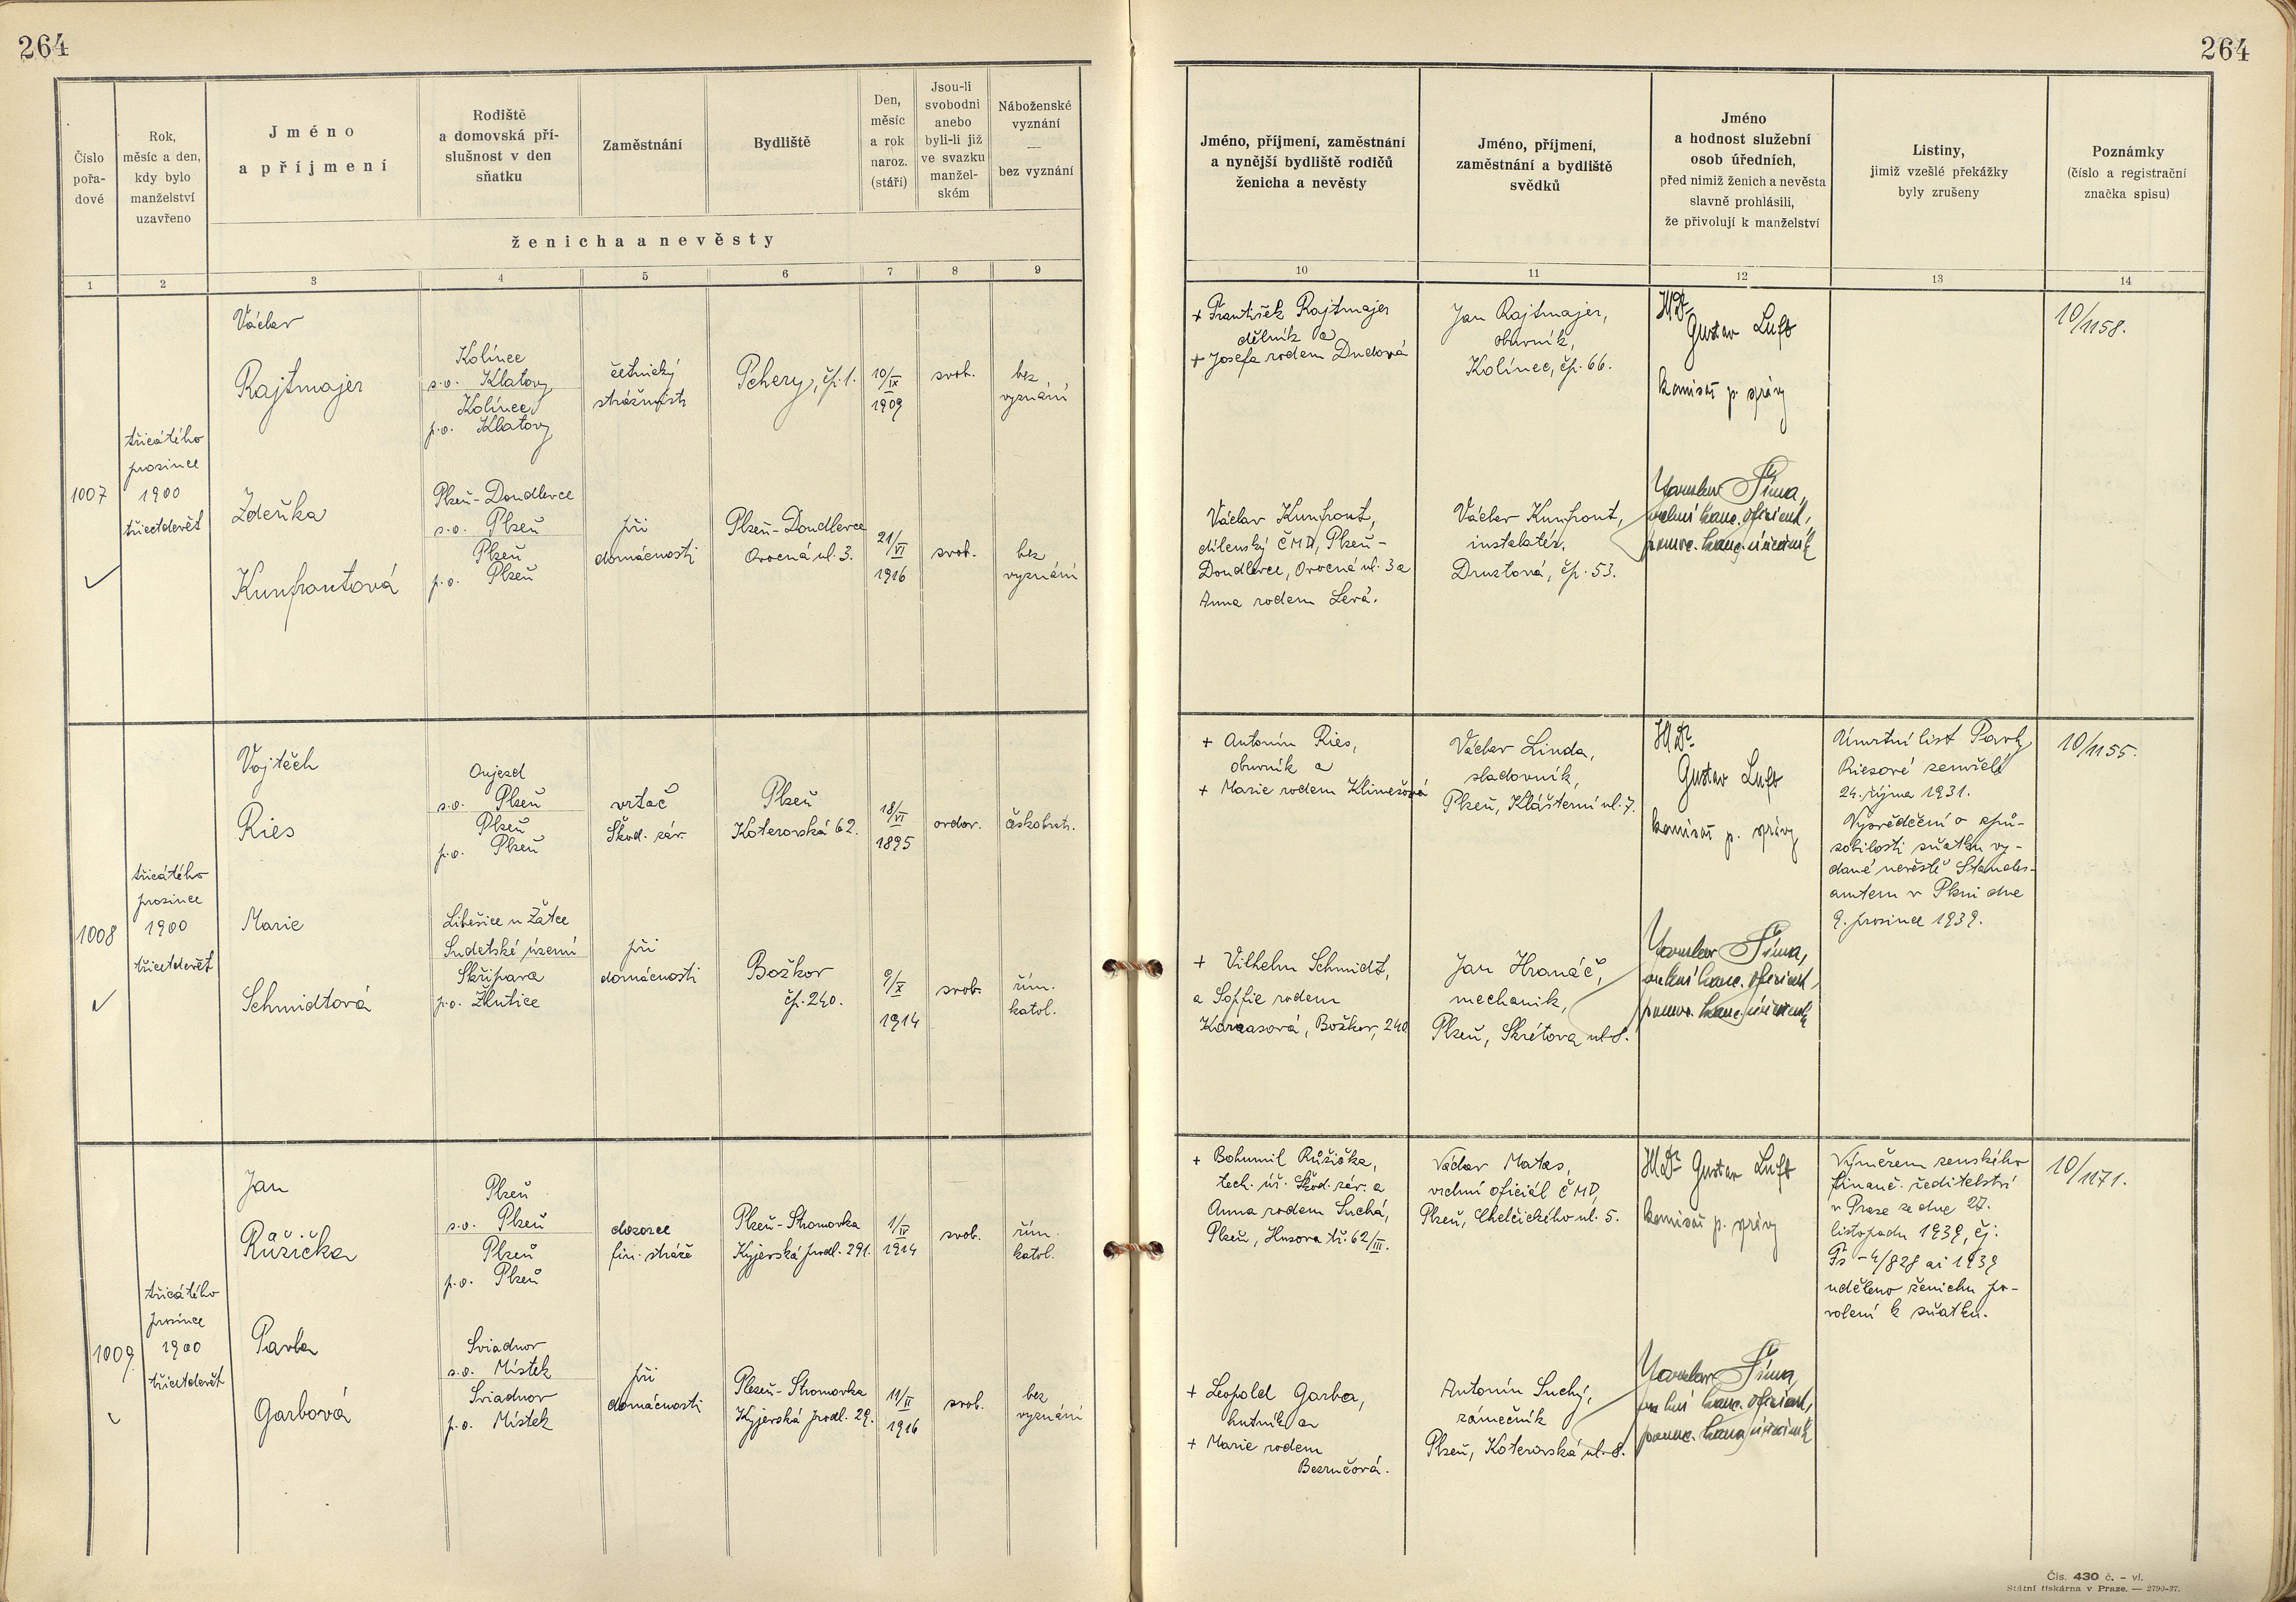 264
264
Číslo
pořa-
dové
Rok,
měsíc a den,
kdy bylo
manželství
uzavřeno
Jméno
a příjmení
Rodiště
a domovská pří-
slušnost v den
sňatku
Zaměstnání
Bydliště
Den,
měsíc
a rok
naroz.
(stáří)
Jsou-li
svobodni
anebo
byli-li již
ve svazku
manžel-
ském
Náboženské
vyznání
—
bez vyznání
ženicha a nevěsty
Jméno, příjmení, zaměstnání
a nynější bydliště rodičů
ženicha a nevěsty
Jméno, příjmení,
zaměstnání a bydliště
svědků
Jméno
a hodnost služební
osob úředních,
před nimiž ženich a nevěsta
slavně prohlásili,
že přivolují k manželství
Listiny,
jimiž vzešlé překážky
byly zrušeny
Poznámky
(číslo a registrační
značka spisu)
1 2 3 4 5 6 7 8 9 10 11 12 13 14
1007
třicátého
prosince
1900
třicetdevět
Václav
Rajtmajer
Kolínec
s.o. Klatovy
Kolínec
p.o. Klatovy
četnický
strážmistr
Pchery, čp. 1.
10/IX
1909
svob.
bez
vyznání
+ František Rajtmajer
dělník a
+ Josefa rodem Dudová
Jan Rajtmajer,
obuvník,
Kolínec, čp. 66.
JUDr.
Gustav Luft
komisař p. správy
10/1158.
Zdeňka
Kunfrontová
Plzeň-Doudlevce
s.o. Plzeň
Plzeň
p.o. Plzeň
při
domácnosti
Plzeň-Doudlevce
Ovocná ul. 3.
21/VI
1916
svob.
bez
vyznání
Václav Kunfront,
dílenský ČMD, Plzeň-
Doudlevce, Ovocná ul. 3 a
Anna rodem Levá.
Václav Kunfront,
instalatér,
Druztová, čp. 53.
Jaroslav Šíma,
vrchní kanc. oficiant,
pomoc. kanc. úředník
1008
třicátého
prosince
1900
třicetdevět
Vojtěch
Ries
Oujezd
s.o. Plzeň
Plzeň
p.o. Plzeň
vrtač
Škod. záv.
Plzeň
Koterovská 62.
18/VI
1895
ovdov.
českobratr.
+ Antonín Ries,
obuvník a
+ Marie rodem Klimešová
Václav Linda,
sladovník,
Plzeň, Klášterní ul. 7.
JUDr.
Gustav Luft
komisař p. správy
Úmrtní list Pavly
Riesové zemřelé
24. října 1931.
Vysvědčení o způ-
sobilosti sňatku vy-
dané nevěstě Standes-
amtem v Plzni dne
9. prosince 1939.
10/1155.
Marie
Schmidtová
Liběšice u Žatce
Sudetské území
Skřipava
p.o. Žlutice
při
domácnosti
Božkov
čp. 240.
9/X
1914
svob.
řím.
katol.
+ Vilhelm Schmidt,
a Sofie rodem
Karasová, Božkov, 240
Jan Hranáč,
mechanik,
Plzeň, Skrétova ul. 8.
Jaroslav Šíma,
vrchní kanc. oficiant,
pomoc. kanc. úředník
1009
třicátého
prosince
1900
třicetdevět
Jan
Růžička
Plzeň
s.o. Plzeň
Plzeň
p.o. Plzeň
dozorce
fin. stráže
Plzeň-Stromovka
Kyjevská prodl. 291.
1/IV
1914
svob.
řím.
katol.
+ Bohumil Růžička,
tech. úř. Škod. záv. a
Anna rodem Suchá,
Plzeň, Husova tř. 62/III.
Václav Matas,
vrchní oficiál ČMD,
Plzeň, Chelčického ul. 5.
JUDr Gustav Luft
komisař p. správy
Výměrem zemského
finanč. ředitelství
v Praze ze dne 27.
listopadu 1939, čj.
Fs-4/828 ai 1939
uděleno ženichu po-
volení k sňatku.
10/1171.
Pavla
Garbová
Sviadnov
s.o. Místek
Sviadnov
p.o. Místek
při
domácnosti
Plzeň-Stromovka
Kyjevská prodl. 29.
11/II
1916
svob.
bez
vyznání
+ Leopold Garba,
hutník a
+ Marie rodem
Bezručová.
Antonín Suchý,
zámečník
Plzeň, Koterovská ul. 8.
Jaroslav Šíma,
vrchní kanc. oficiant,
pomoc. kanc. úředník
Čís. 430 č. - vl.
Státní tiskárna v Praze. — 2790-37.